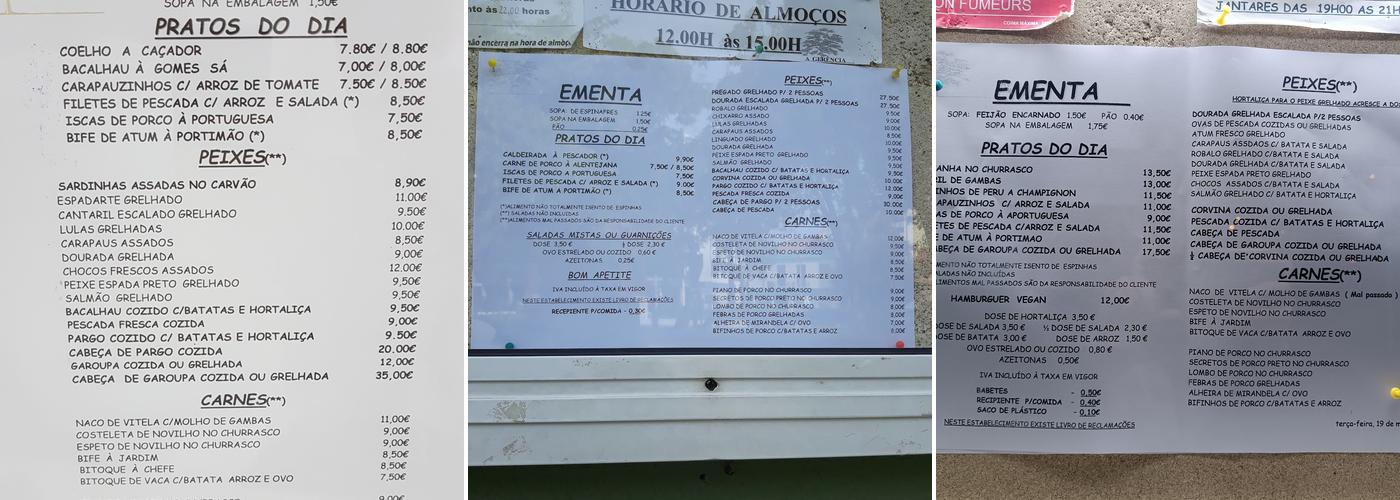 SOPA NA EMBALAGEM 1,50€
PRATOS DO DIA
COELHO A CAÇADOR 7.80€ / 8.80€
BACALHAU À GOMES SÁ 7,00€ / 8,00€
CARAPAUZINHOS C/ ARROZ DE TOMATE 7.50€ / 8.50€
FILETES DE PESCADA C/ ARROZ E SALADA (*) 8,50€
ISCAS DE PORCO À PORTUGUESA 7,50€
BIFE DE ATUM À PORTIMÃO (*) 8,50€
PEIXES(**)
SARDINHAS ASSADAS NO CARVÃO 8,90€
ESPADARTE GRELHADO 11,00€
CANTARIL ESCALADO GRELHADO 9.50€
LULAS GRELHADAS 10.00€
CARAPAUS ASSADOS 8,50€
DOURADA GRELHADA 9,00€
CHOCOS FRESCOS ASSADOS 12.00€
PEIXE ESPADA PRETO GRELHADO 9,50€
SALMÃO GRELHADO 9,50€
BACALHAU COZIDO C/BATATAS E HORTALIÇA 9,50€
PESCADA FRESCA COZIDA 9,00€
PARGO COZIDO C/ BATATAS E HORTALIÇA 9.50€
CABEÇA DE PARGO COZIDA 20.00€
GAROUPA COZIDA OU GRELHADA 12,00€
CABEÇA DE GAROUPA COZIDA OU GRELHADA 35,00€
CARNES(**)
NACO DE VITELA C/MOLHO DE GAMBAS 11,00€
COSTELETA DE NOVILHO NO CHURRASCO 9,00€
ESPETO DE NOVILHO NO CHURRASCO 9,00€
BIFE À JARDIM 8,50€
BITOQUE À CHEFE 8,50€
BITOQUE DE VACA C/BATATA ARROZ E OVO 7,50€
nto às 22.00 horas
não encerra na hora de almoço
HORÁRIO DE ALMOÇOS
12.00H às 15.00H
A GERÊNCIA
EMENTA
SOPA: DE ESPINAFRES 1.25€
SOPA NA EMBALAGEM 1,50€
PÃO 0.25€
PRATOS DO DIA
CALDEIRADA À PESCADOR (*) 9,90€
CARNE DE PORCO À ALENTEJANA 7,50€ / 8,50€
ISCAS DE PORCO À PORTUGUESA 7,50€
FILETES DE PESCADA C/ ARROZ E SALADA (*) 9.00€
BIFE DE ATUM A PORTIMÃO (*) 8,50€
(*)ALIMENTO NÃO TOTALMENTE ISENTO DE ESPINHAS
(**) SALADAS NÃO INCLUÍDAS
(**)ALIMENTOS MAL PASSADOS SÃO DA RESPONSABILIDADE DO CLIENTE
SALADAS MISTAS OU GUARNIÇÕES
DOSE 3,50 € ½ DOSE 2.30 €
OVO ESTRELADO OU COZIDO 0,60 €
AZEITONAS 0.25€
BOM APETITE
IVA INCLUÍDO À TAXA EM VIGOR
NESTE ESTABELECIMENTO EXISTE LIVRO DE RECLAMAÇÕES
RECEPIENTE P/COMIDA - 0,30€
PEIXES(**)
PREGADO GRELHADO P/ 2 PESSOAS 27.50€
DOURADA ESCALADA GRELHADA P/ 2 PESSOAS 27.50€
ROBALO GRELHADO
CHIXARRO ASSADO
LULAS GRELHADAS
CARAPAUS ASSADOS
LINGUADO GRELHADO
DOURADA GRELHADA
PEIXE ESPADA PRETO GRELHADO
SALMÃO GRELHADO
BACALHAU COZIDO C/ BATATAS E HORTALIÇA
CORVINA COZIDA OU GRELHADA
PARGO COZIDO C/ BATATAS E HORTALIÇA
PESCADA FRESCA COZIDA
CABEÇA DE PARGO P/ 2 PESSOAS
CABEÇA DE PESCADA
CARNES(**)
NACO DE VITELA C/MOLHO DE GAMBAS 12,00€
COSTELETA DE NOVILHO NO CHURRASCO 9,50€
ESPETO DE NOVILHO NO CHURRASCO 9,00€
BIFE À JARDIM 8,50€
BITOQUE À CHEFE 8,50€
BITOQUE DE VACA C/BATATA ARROZ E OVO 7,50€
PIANO DE PORCO NO CHURRASCO 7,00€
SECRETOS DE PORCO PRETO NO CHURRASCO 9,00€
LOMBO DE PORCO NO CHURRASCO 8,00€
FEBRAS DE PORCO GRELHADAS 8,00€
ALHEIRA DE MIRANDELA C/ OVO 7,00€
BIFINHOS DE PORCO C/BATATAS E ARROZ 8,00€
ON FUMEURS
JANTARES DAS 19H00 AS 21H
EMENTA
SOPA: FEIJÃO ENCARNADO 1.50€ PÃO 0.40€
SOPA NA EMBALAGEM 1,75€
PRATOS DO DIA
ANHA NO CHURRASCO 13,50€
IL DE GAMBAS 13,00€
INHOS DE PERU A CHAMPIGNON 11,50€
APAUZINHOS C/ ARROZ DE TOMATE 11,50€
AS DE PORCO À APORTUGUESA 9,00€
ETES DE PESCADA C/ ARROZ E SALADA 11,50€
E DE ATUM À PORTIMAO 11,00€
BEÇA DE GAROUPA COZIDA OU GRELHADA 17,50€
IMENTO NÃO TOTALMENTE ISENTO DE ESPINHAS
ALADAS NÃO INCLUÍDAS
IMENTOS MAL PASSADOS SÃO DA RESPONSABILIDADE DO CLIENTE
HAMBURGUER VEGAN 12,00€
DOSE DE HORTALIÇA 3,50 €
DOSE DE SALADA 3,50 € ½ DOSE DE SALADA 2,30 €
OSE DE BATATA 3,00 € DOSE DE ARROZ 1,50 €
OVO ESTRELADO OU COZIDO 0,80 €
AZEITONAS 0,50€
IVA INCLUÍDO À TAXA EM VIGOR
BABETES - 0,50€
RECIPIENTE P/COMIDA - 0,40€
SACO DE PLÁSTICO - 0,10€
NESTE ESTABELECIMENTO EXISTE LIVRO DE RECLAMAÇÕES
PEIXES(**)
HORTALIÇA PARA O PEIXE GRELHADO ACRESCE A DO
DOURADA GRELHADA ESCALADA P/2 PESSOAS
OVAS DE PESCADA COZIDAS OU GRELHADAS
ATUM FRESCO GRELHADO
CARAPAUS ASSDAOS C/ BATATA E SALADA
ROBALO GRELHADO C/ BATATA E SALADA
DOURADA GRELHADA C/ BATATA E SALADA
PEIXE ESPADA PRETO GRELHADO
CHOCOS ASSADOS C/BATATA E SALADA
SALMÃO GRELHADO C/ BATATA E HORTALIÇA
CORVINA COZIDA OU GRELHADA
PESCADA COZIDA C/ BATATAS E HORTALIÇA
CABEÇA DE PESCADA
CABEÇA DE GAROUPA COZIDA OU GRELHADA
½ CABEÇA DE CORVINA COZIDA OU GRELHADA
CARNES(**)
NACO DE VITELA C/MOLHO DE GAMBAS ( Mal passado )
COSTELETA DE NOVILHO NO CHURRASCO
ESPETO DE NOVILHO NO CHURRASCO
BIFE À JARDIM
BITOQUE DE VACA C/BATATA ARROZ E OVO
PIANO DE PORCO NO CHURRASCO
SECRETOS DE PORCO PRETO NO CHURRASCO
LOMBO DE PORCO NO CHURRASCO
FEBRAS DE PORCO GRELHADAS
ALHEIRA DE MIRANDELA C/ OVO
BIFINHOS DE PORCO C/BATATAS E ARROZ
terça-feira, 19 de m